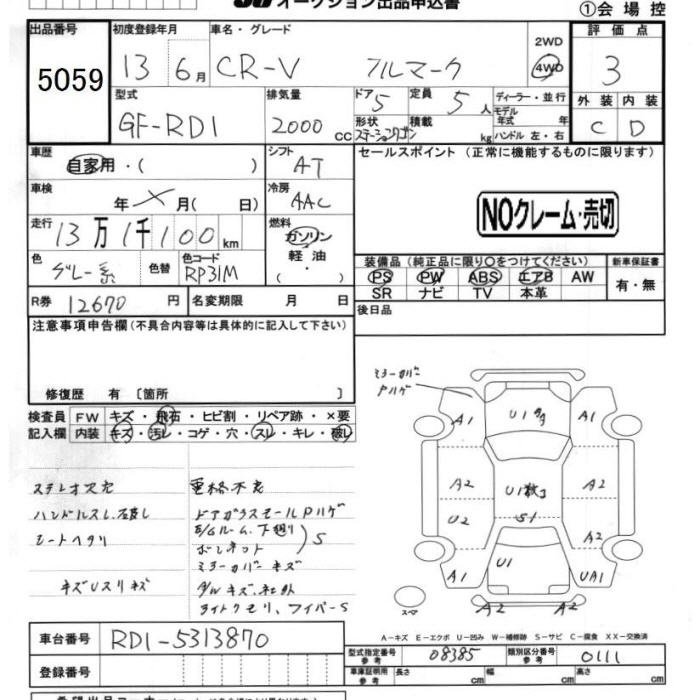 オークション出品申込書
①会場控
出品番号 5059
初度登録年月 13年 6月
車名・グレード CR-V フルマーク
2WD
4WD
評価点 3
外装 C 内装 D
型式 GF-RD1
排気量 2000 cc
ドア 5
定員 5人
形状 ステーションワゴン
積載 kg
ディーラー・並行
モデル年式 年
ハンドル 左・右
車歴 自家用・( )
シフト AT
セールスポイント (正常に機能するものに限ります)
車検 年 × 月( 日)
冷房 AAC
NOクレーム・売切
走行 13万1千100km
燃料 ガソリン
軽油
・( )
色 グレー系
色替
色コード RP31M
装備品(純正品に限り○をつけてください)
PS PW ABS エアB AW
SR ナビ TV 本革
新車保証書 有・無
R券 12670円
名変期限 月 日
後日品
注意事項申告欄(不具合内容等は具体的に記入して下さい)
修復歴 有〔箇所 〕
検査員記入欄
FW キズ・飛石・ヒビ割・リペア跡・×要
内装 キズ・汚レ・コゲ・穴・スレ・キレ・破レ
ステレオ欠品
ハンドルスレ、破レ
シートヘタリ
キズUスリキズ
重格不良
ドアガラスモールPハゲ
E/Gルーム、下廻り
ボンネット
S
ミラーカバーキズ
A/Wキズ、社外
ライトクモリ、ワイパーS
ミラーカバー
Pハゲ
A1 U1 A1
A2 U1 A2
U2 S1 A2
A1 U1 UA1
A2 A2
スペア
A-キズ E-エクボ U-凹み W-補修跡 S-サビ C-腐食 XX-交換済
車台番号 RD1-5313870
登録番号
型式指定番号 参考 08385
類別区分番号 参考 0111
車庫証明用 参考 長さ cm 幅 cm 高さ cm